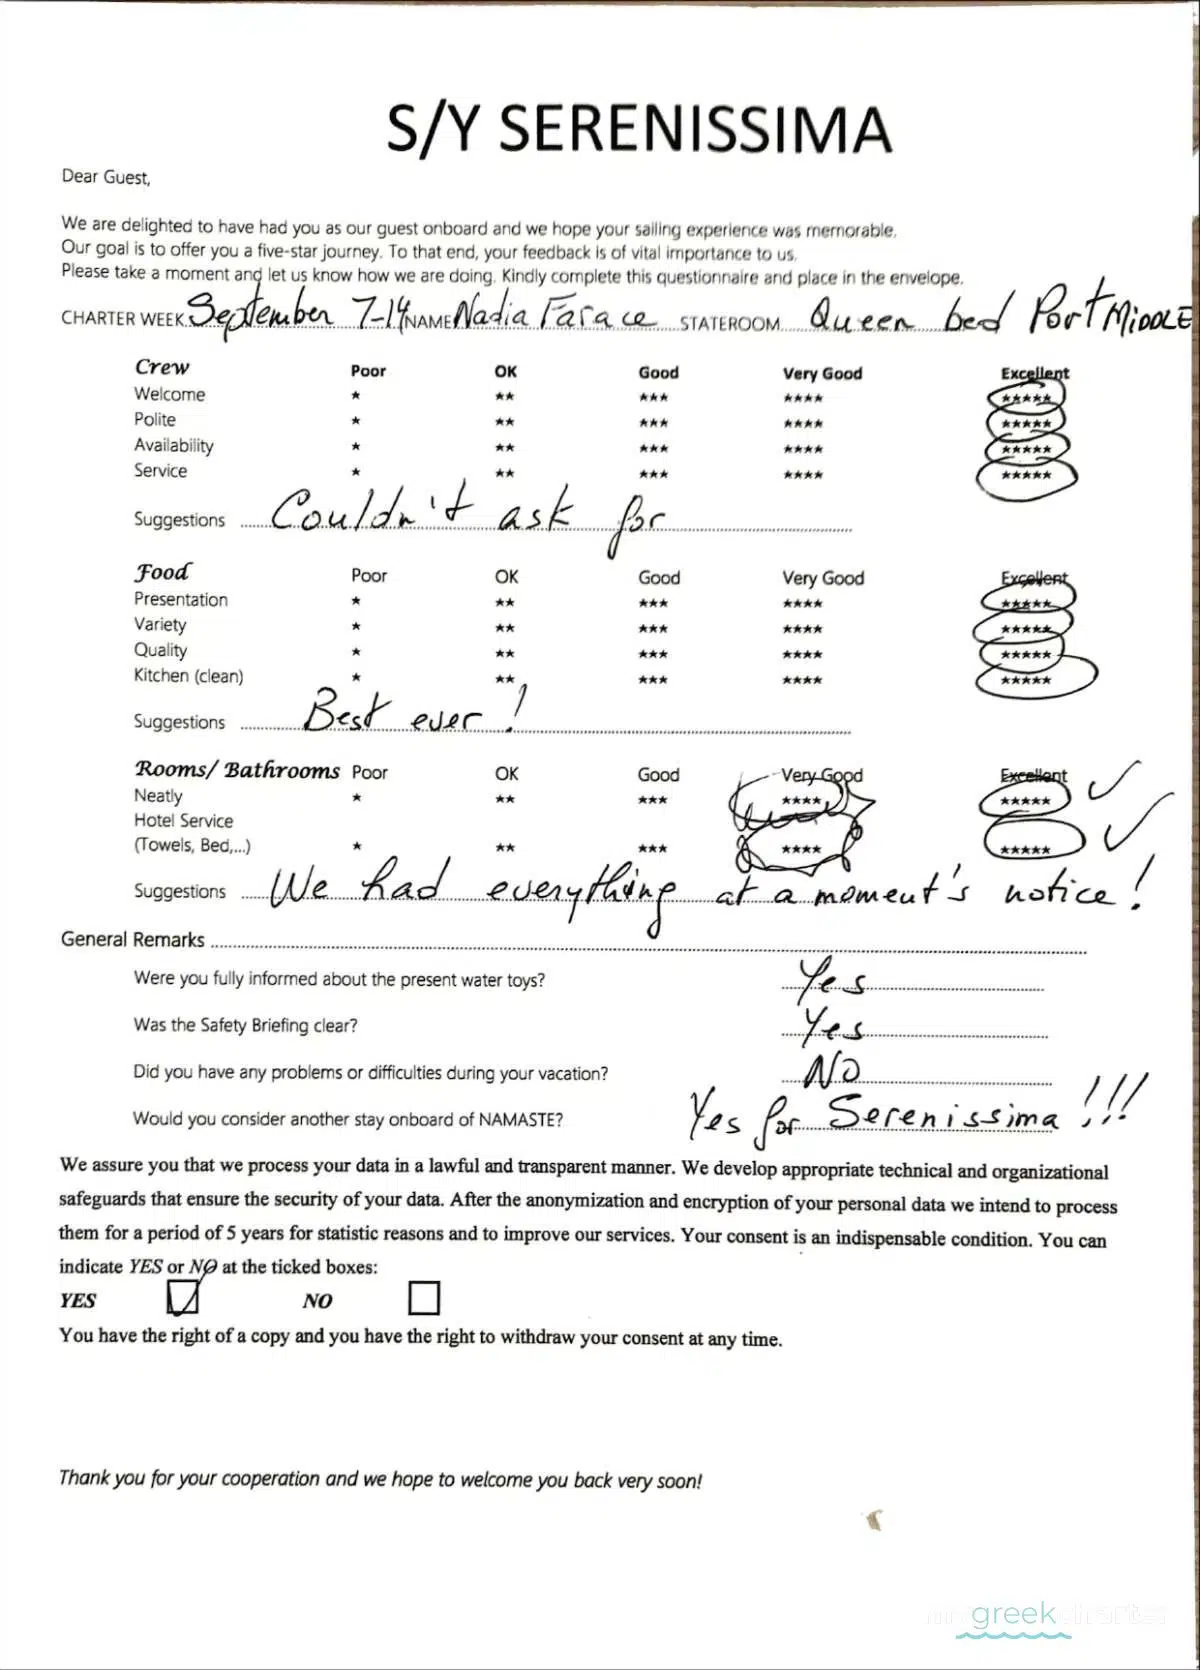 S/Y SERENISSIMA
Dear Guest,
We are delighted to have had you as our guest onboard and we hope your sailing experience was memorable.
Our goal is to offer you a five-star journey. To that end, your feedback is of vital importance to us.
Please take a moment and let us know how we are doing. Kindly complete this questionnaire and place in the envelope.
CHARTER WEEK September 7-14 NAME Nadia Farace STATEROOM Queen bed Port MIDDLE
Crew Poor OK Good Very Good Excellent
Welcome ★ ★★ ★★★ ★★★★ ★★★★★
Polite ★ ★★ ★★★ ★★★★ ★★★★★
Availability ★ ★★ ★★★ ★★★★ ★★★★★
Service ★ ★★ ★★★ ★★★★ ★★★★★
Suggestions Couldn't ask for
Food Poor OK Good Very Good Excellent
Presentation ★ ★★ ★★★ ★★★★ ★★★★★
Variety ★ ★★ ★★★ ★★★★ ★★★★★
Quality ★ ★★ ★★★ ★★★★ ★★★★★
Kitchen (clean) ★ ★★ ★★★ ★★★★ ★★★★★
Suggestions Best ever!
Rooms/ Bathrooms Poor OK Good Very Good Excellent
Neatly ★ ★★ ★★★ ★★★★ ★★★★★ ✓
Hotel Service
(Towels, Bed,...) ★ ★★ ★★★ ★★★★ ★★★★★ ✓
Suggestions We had everything at a moment's notice!
General Remarks
Were you fully informed about the present water toys? Yes
Was the Safety Briefing clear? Yes
Did you have any problems or difficulties during your vacation? No
Would you consider another stay onboard of NAMASTE? Yes for Serenissima!!!
We assure you that we process your data in a lawful and transparent manner. We develop appropriate technical and organizational
safeguards that ensure the security of your data. After the anonymization and encryption of your personal data we intend to process
them for a period of 5 years for statistic reasons and to improve our services. Your consent is an indispensable condition. You can
indicate YES or NO at the ticked boxes:
YES NO
You have the right of a copy and you have the right to withdraw your consent at any time.
Thank you for your cooperation and we hope to welcome you back very soon!
greek